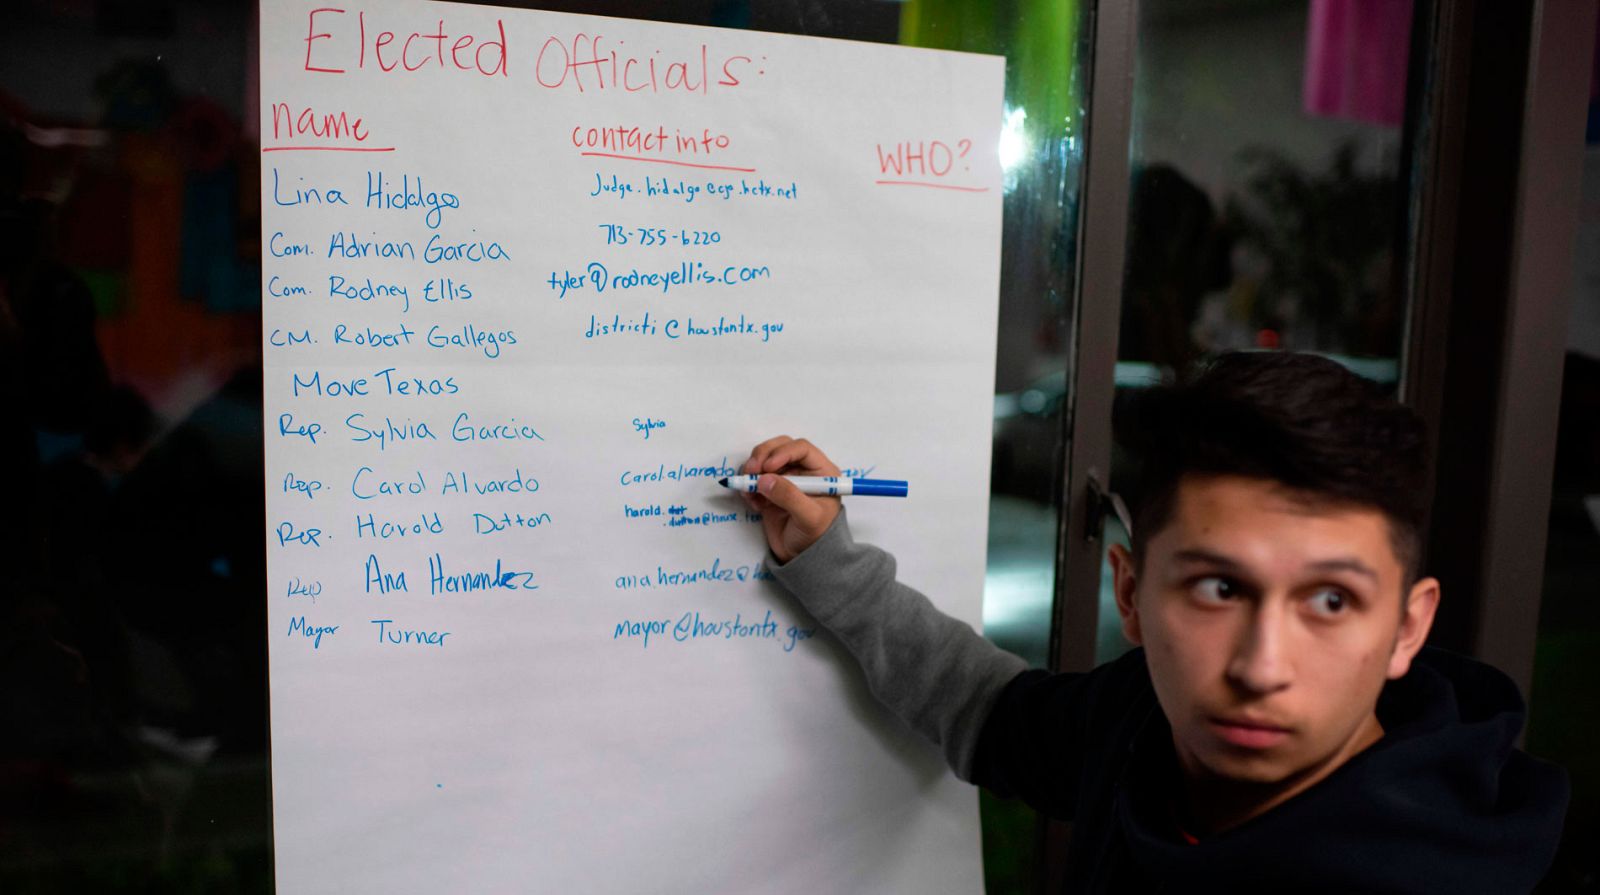 Elected Officials:
name contact info WHO?
Lina Hidalgo Judge.hidalgo@cjo.hctx.net
Com. Adrian Garcia 713-755-6220
Com. Rodney Ellis tyler@rodneyellis.com
CM. Robert Gallegos districti@houstontx.gov
Move Texas
Rep. Sylvia Garcia Sylvia
Rep. Carol Alvardo Carol.alvarado
Rep. Harold Dutton harold. dutton@house.
Rep Ana Hernandez ana.hernandez@
Mayor Turner mayor@houstontx.gov